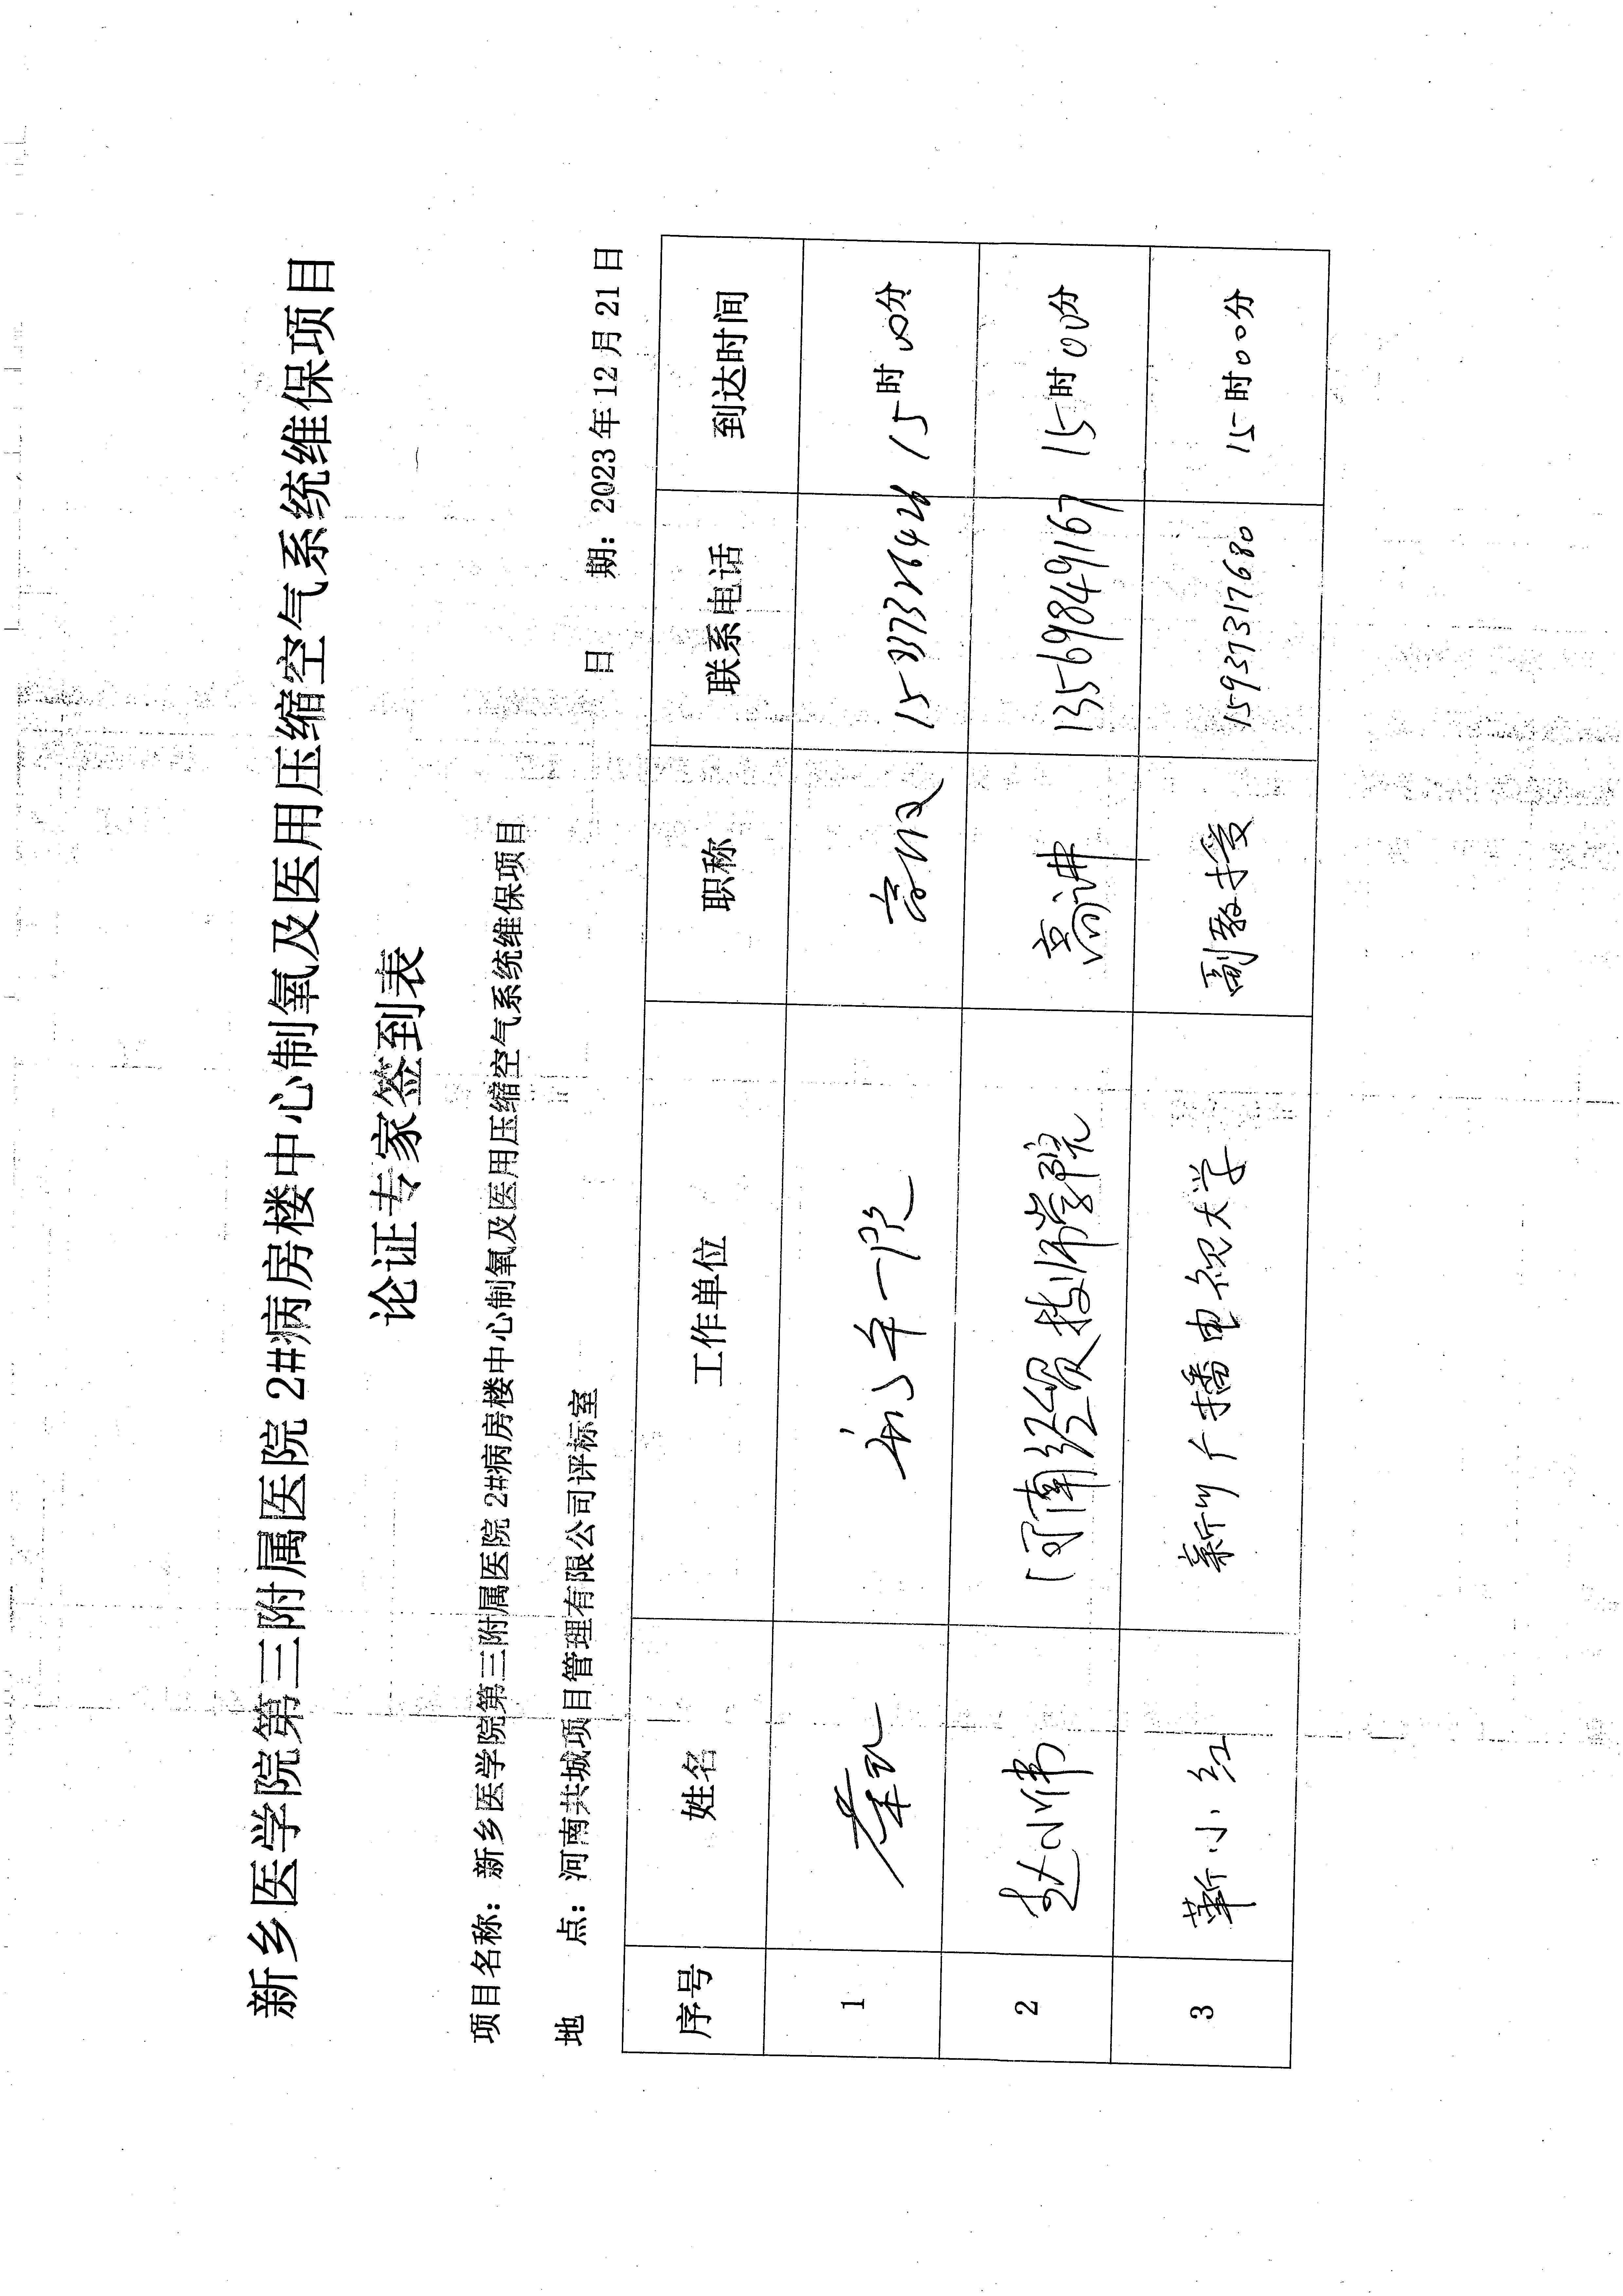 新乡医学院第三附属医院 2#病房楼中心制氧及医用压缩空气系统维保项目
论证专家签到表
项目名称： 新乡医学院第三附属医院 2#病房楼中心制氧及医用压缩空气系统维保项目
地 点： 河南共城项目管理有限公司评标室 日 期： 2023 年 12 月 21 日
序号 姓名 工作单位 职称 联系电话 到达时间
1 15时00分
2 河南经贸技师学院 高讲 13569849167 15时00分
3 靳小红 新乡广播电视大学 副教授 15937317680 15时00分